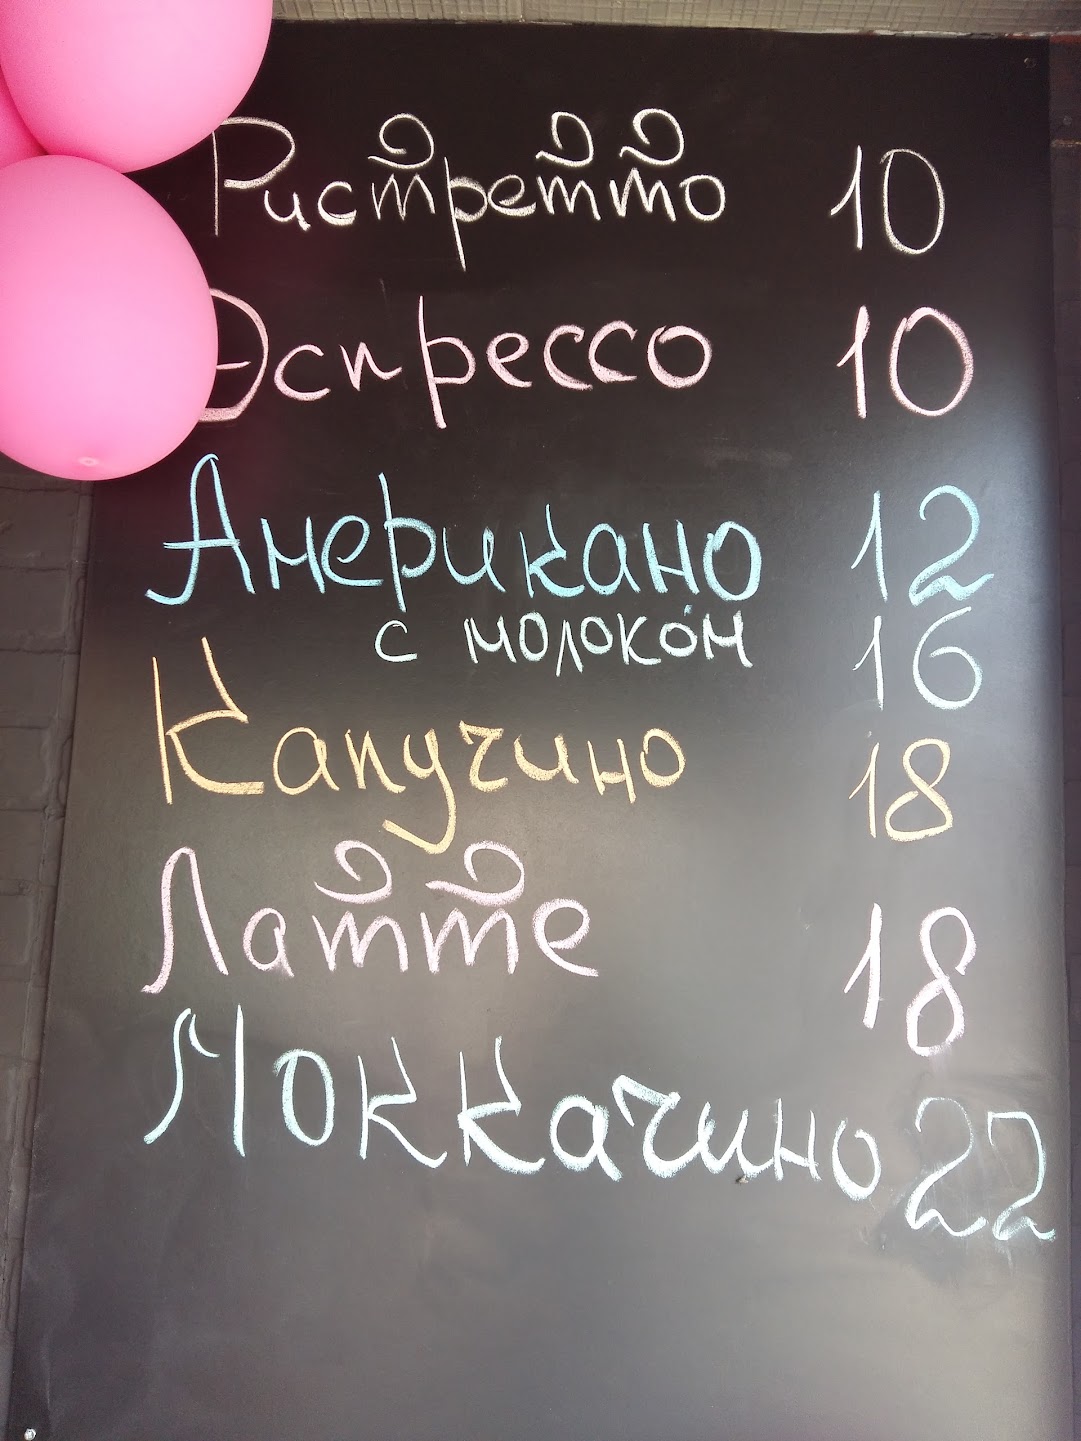 Ристретто 10
Эспрессо 10
Американо 12
с молоком 16
Капучино 18
Латте 18
Моккачино 22